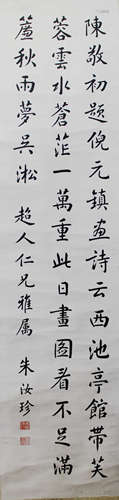 陳敬初題倪元鎮畫詩云西池亭館帶芙
蓉雲水蒼茫一萬重此日畫圖看不足滿
簾秋雨夢吳淞 超人仁兄雅属 朱汝珍